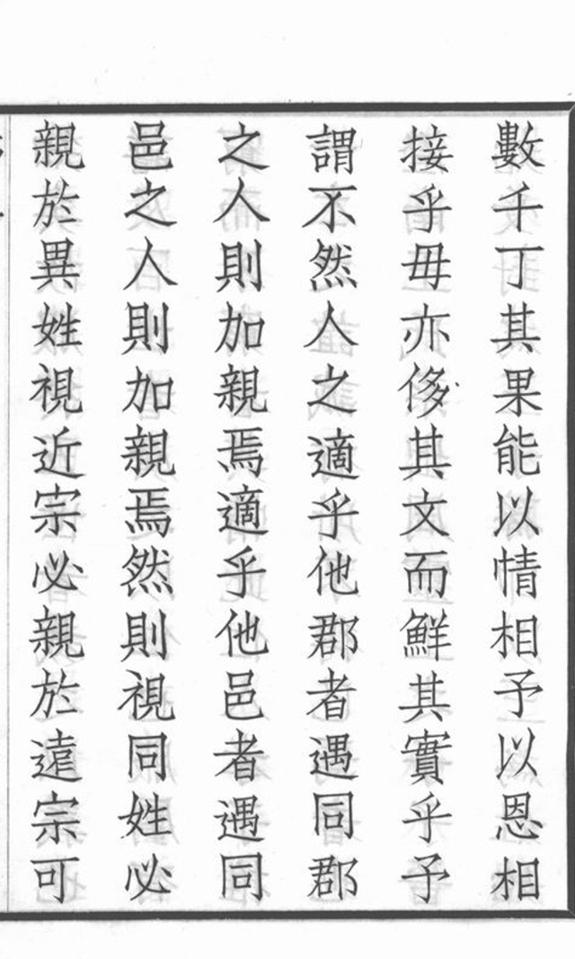 數千丁其果能以情相予以恩相
接乎毋亦侈其文而鮮其實乎予
謂不然人之適乎他郡者遇同郡
之人則加親焉適乎他邑者遇同
邑之人則加親焉然則視同姓必
親於異姓視近宗必親於遠宗可